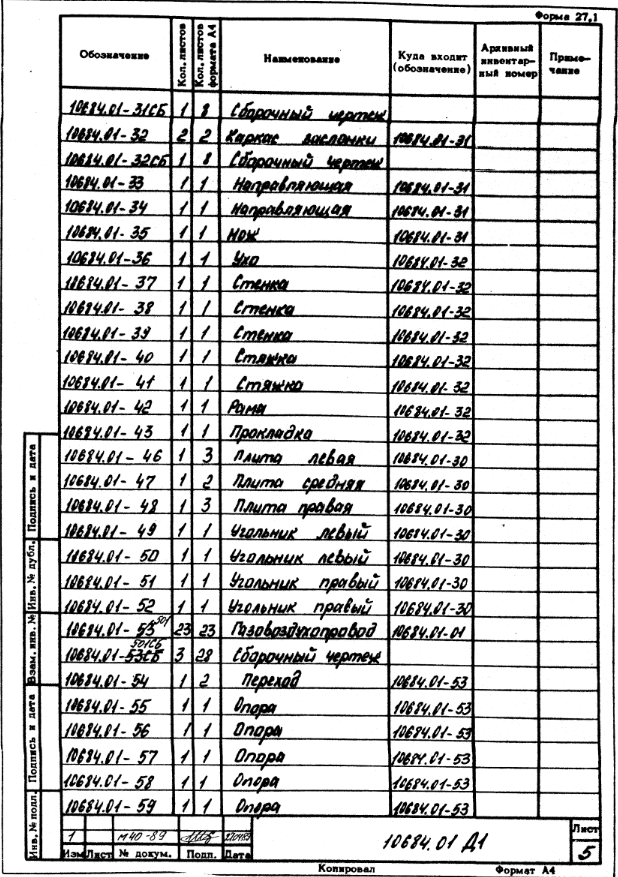 Форма 27,1
Обозначение Кол. листов Кол. листов формата А4 Наименование Куда входит (обозначение) Архивный инвентарный номер Примечание
10684.01-31СБ 1 8 Сборочный чертеж
10684.01-32 2 2 Каркас заслонки 10684.01-31
10684.01-32СБ 1 8 Сборочный чертеж
10684.01-33 1 1 Направляющая 10684.01-31
10684.01-34 1 1 Направляющая 10684.01-31
10684.01-35 1 1 Нож 10684.01-31
10684.01-36 1 1 Ухо 10684.01-32
10684.01-37 1 1 Стенка 10684.01-32
10684.01-38 1 1 Стенка 10684.01-32
10684.01-39 1 1 Стенка 10684.01-32
10684.01-40 1 1 Стяжка 10684.01-32
10684.01-41 1 1 Стяжка 10684.01-32
10684.01-42 1 1 Рама 10684.01-32
10684.01-43 1 1 Прокладка 10684.01-32
10684.01-46 1 3 Плита левая 10684.01-30
10684.01-47 1 2 Плита средняя 10684.01-30
10684.01-48 1 3 Плита правая 10684.01-30
10684.01-49 1 1 Угольник левый 10684.01-30
10684.01-50 1 1 Угольник левый 10684.01-30
10684.01-51 1 1 Угольник правый 10684.01-30
10684.01-52 1 1 Угольник правый 10684.01-30
10684.01-53 501 23 23 Газовоздухопровод 10684.01-01
10684.01-53СБ 501СБ 3 28 Сборочный чертеж
10684.01-54 1 2 Переход 10684.01-53
10684.01-55 1 1 Опора 10684.01-53
10684.01-56 1 1 Опора 10684.01-53
10684.01-57 1 1 Опора 10684.01-53
10684.01-58 1 1 Опора 10684.01-53
10684.01-59 1 1 Опора 10684.01-53
Подпись и дата
Инв. № дубл.
Взам. инв. №
Подпись и дата
Инв. № подл.
1 М40-89
Изм Лист № докум. Подп. Дата
10684.01 Д1
Лист
5
Копировал Формат А4